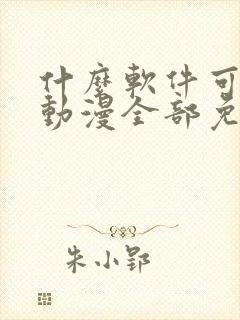 什麼軟件可
動漫全部免
朱小郢